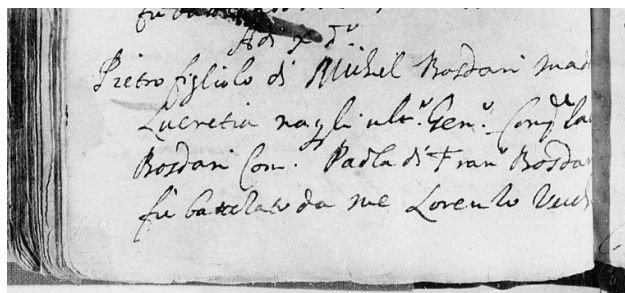 fù bat
Adi x dº
Pietro figliolo di Michel Bosdari mad
Lucretia nagli ult.º Gen.º Comp.e la
Bosdari Com. Paola di Franº Bosda
fù battezato da me Lorenzo